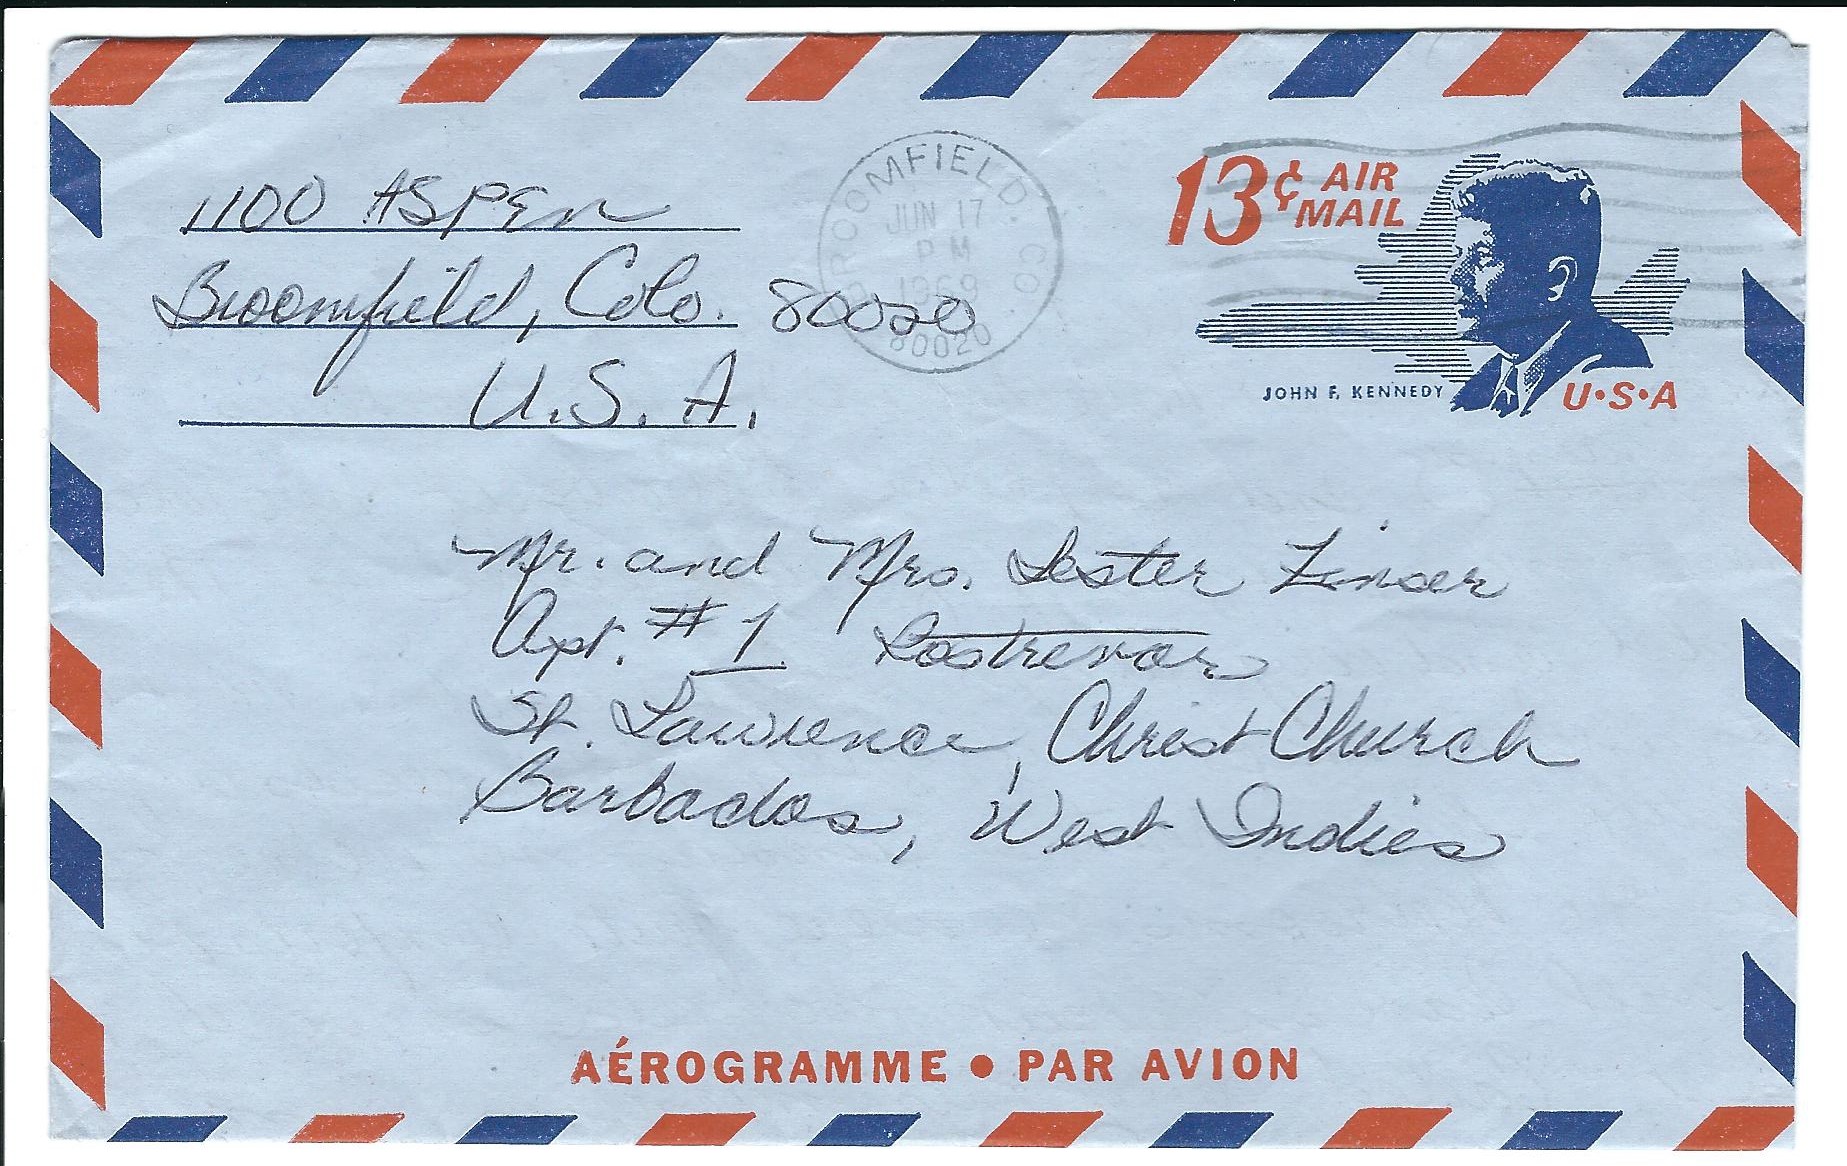 1100 ASPEN
Broomfield, Colo. 80020
U.S.A.
BROOMFIELD, CO.
JUN 17
PM
1969
80020
13¢ AIR MAIL
JOHN F. KENNEDY
U•S•A
Mr. and Mrs. Lester Zinser
Apt. #1 Rostrevor
St. Lawrence, Christ Church
Barbados, West Indies
AÉROGRAMME • PAR AVION